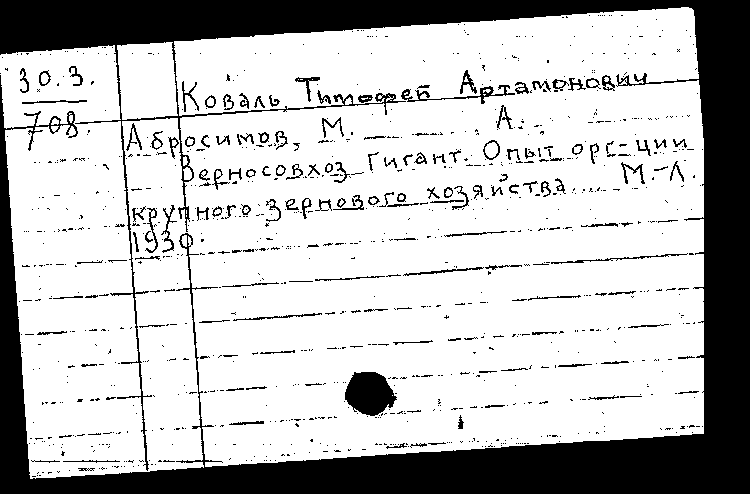 30.3.
708.
Коваль, Тимофей Артамонович
Абросимов, М. А.
Зерносовхоз Гигант. Опыт орг-ции
крупного зернового хозяйства... М.-Л.
1930.